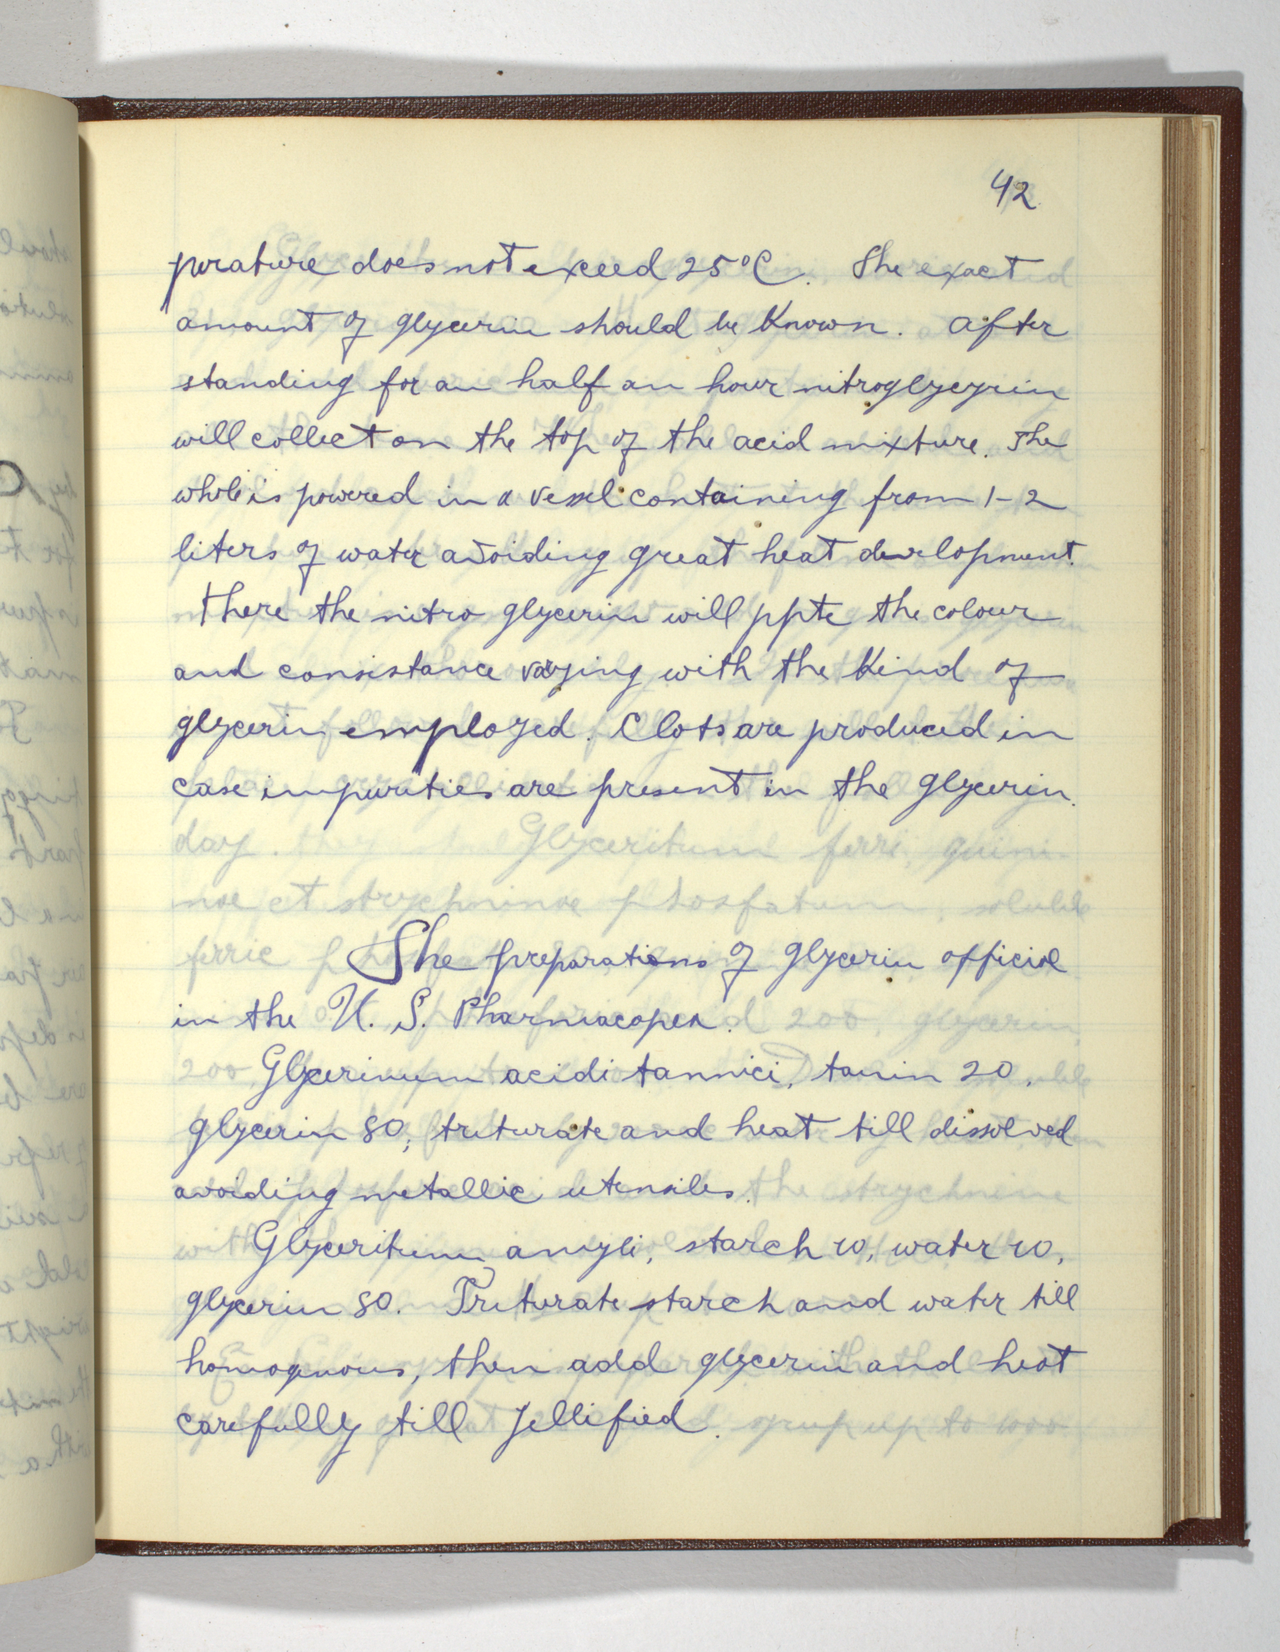 42
perature does not exceed 25°C. The exact
amount of glycerin should be known. After
standing for an half an hour nitroglycyrin
will collect on the top of the acid mixture. The
whole is powered in a vessel containing from 1-2
liters of water avoiding great heat development.
There the nitro glycerin will ppte the colour
and consistance varying with the kind of
glycerin employed. Clots are produced in
case impurities are present in the glycerin.
The preparations of glycerin official
in the U. S. Pharmacopea.
Glycerinum acidi tannici, tanin 20,
glycerin 80, triturate and heat till dissolved
avoiding metallic utensiles.
Glyceritum amyli, starch 10, water 10,
glycerin 80. Triturate starch and water till
homogenous, then add glycerin and heat
carefully till jellified.